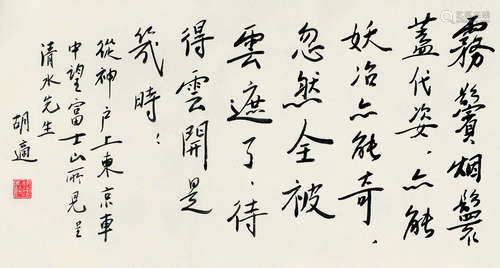 霧鬢烟鬟
蓋代姿，亦能
妖冶亦能奇．
忽然全被
雲遮了．待
得雲開是
幾時！
從神戶上東京車
中望富士山所見呈
清水先生
胡適